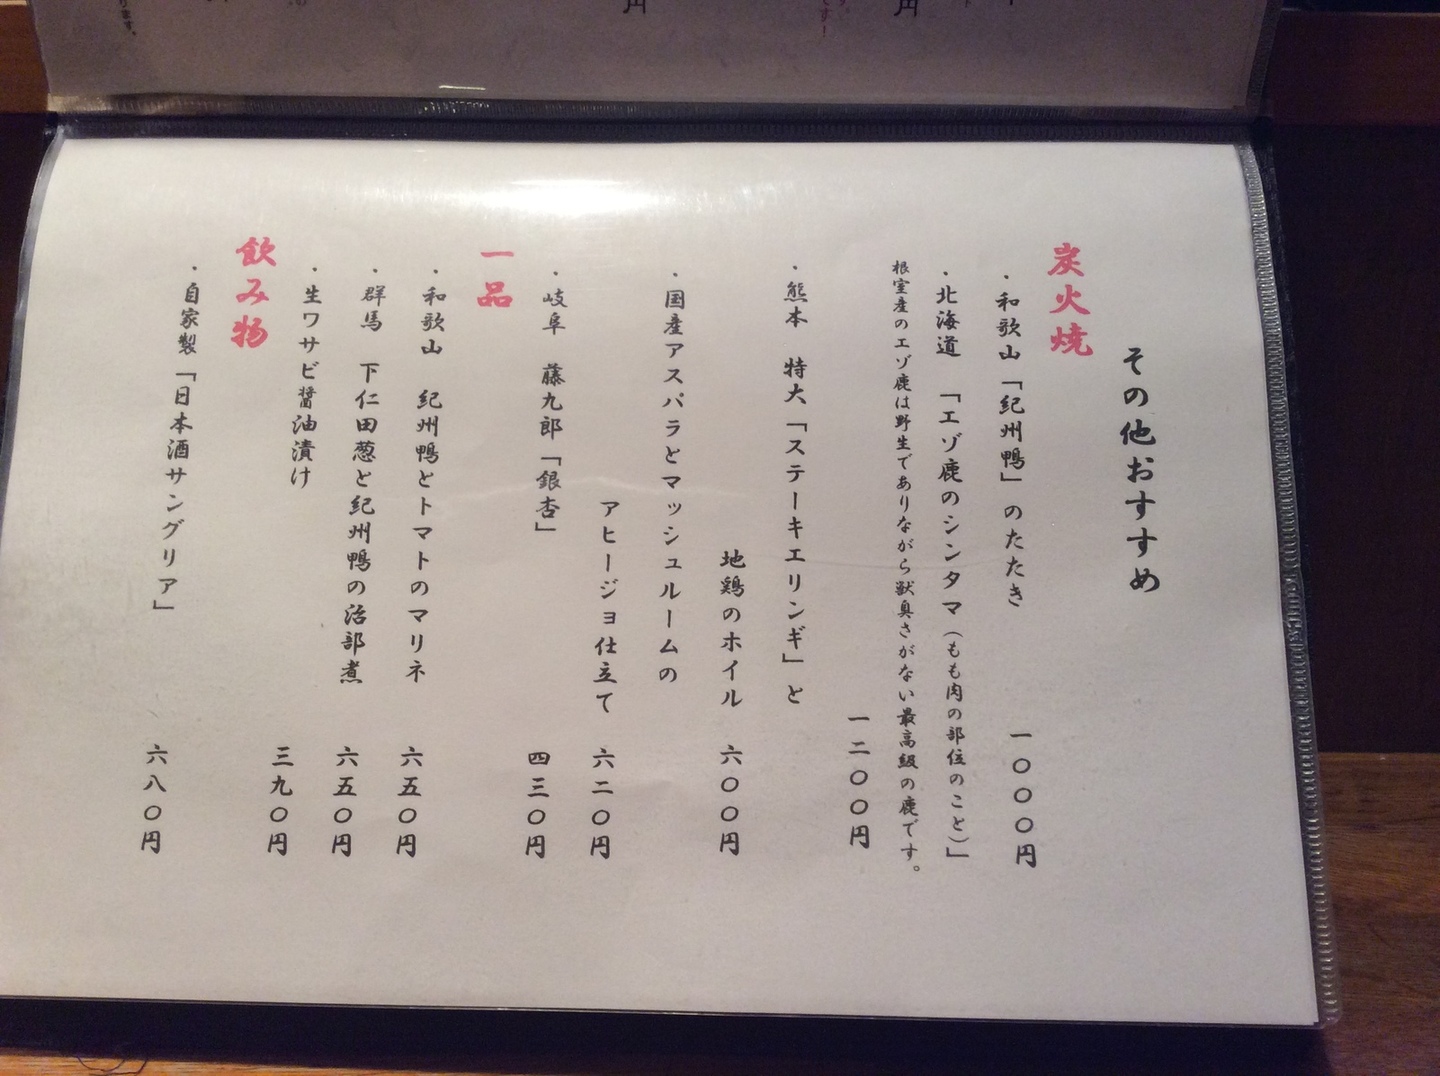 その他おすすめ
炭火焼
・和歌山「紀州鴨」のたたき 一〇〇〇円
・北海道 「エゾ鹿のシンタマ（もも肉の部位のこと）」
根室産のエゾ鹿は野生でありながら獣臭さがない最高級の鹿です。
一二〇〇円
・熊本 特大「ステーキエリンギ」と
地鶏のホイル 六〇〇円
・国産アスパラとマッシュルームの
アヒージョ仕立て 六二〇円
・岐阜 藤九郎「銀杏」 四三〇円
一品
・和歌山 紀州鴨とトマトのマリネ 六五〇円
・群馬 下仁田葱と紀州鴨の治部煮 六五〇円
・生ワサビ醤油漬け 三九〇円
飲み物
・自家製「日本酒サングリア」 六八〇円
円
円
です!
ります。